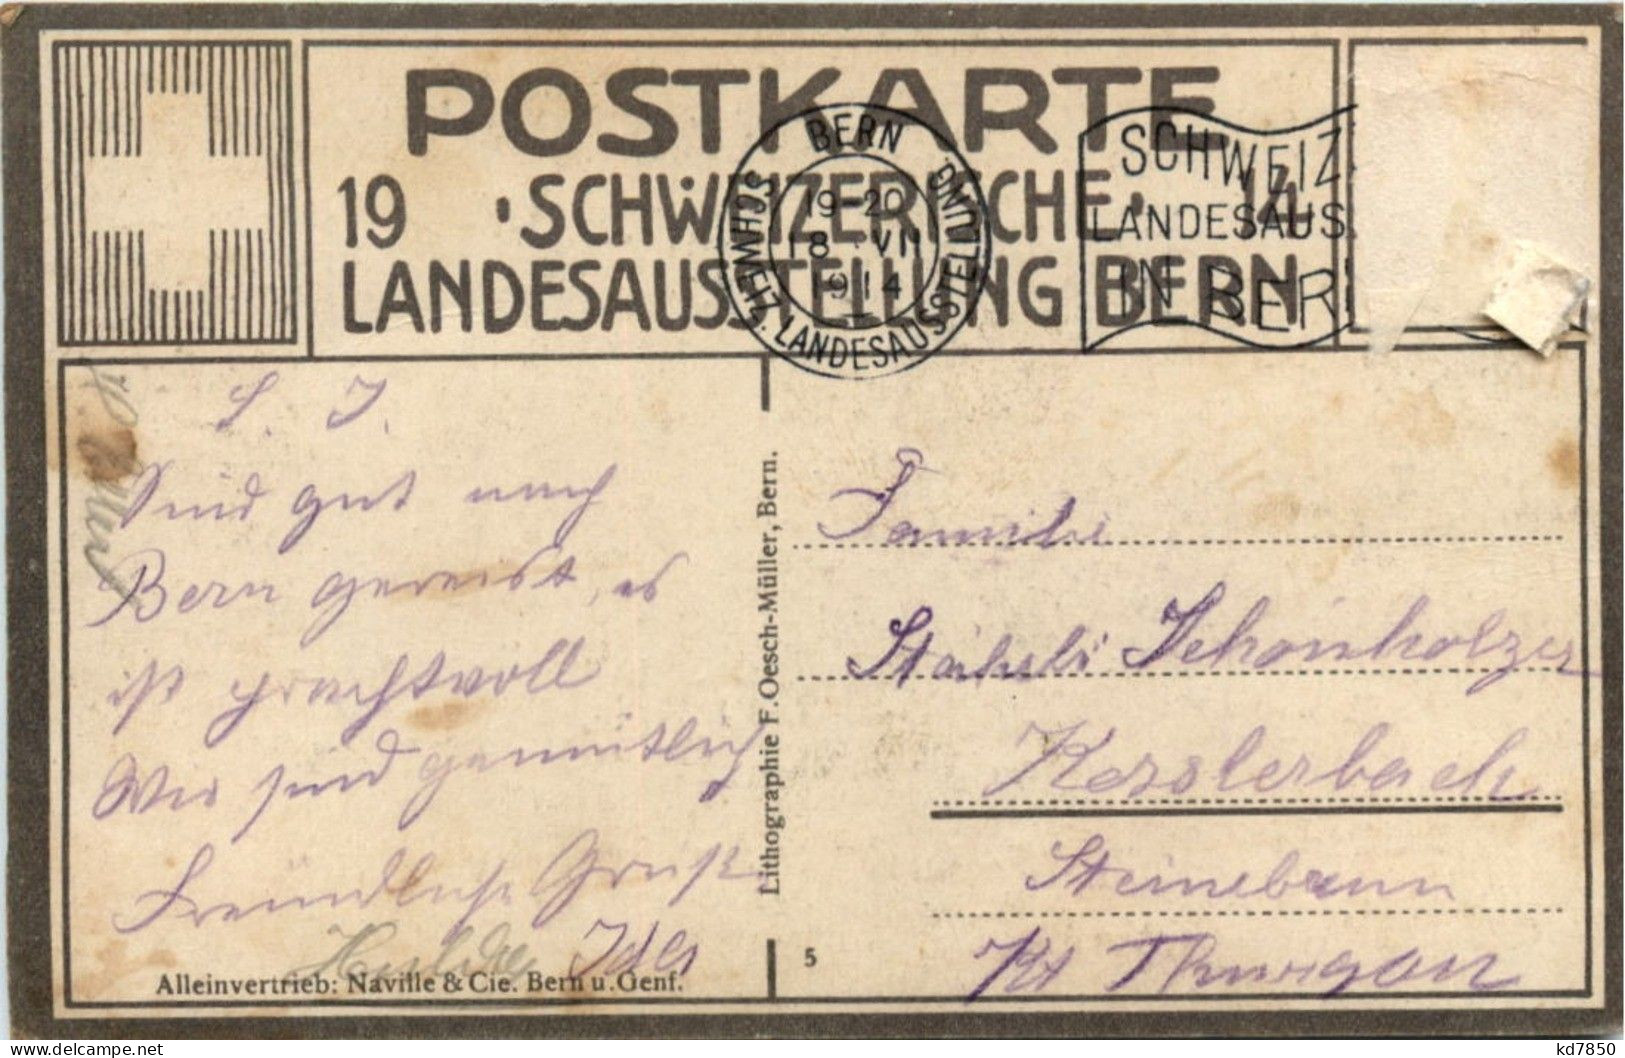 POSTKARTE
19 · SCHWEIZERISCHE · 14
LANDESAUSSTELLUNG BERN
BERN
SCHWEIZ. LANDESAUSSTELLUNG
19-20
18 VII
1914
SCHWEIZ.
LANDESAUS
IN BERN
L. I.
Sind gut nach
Bern gereist, es
ist prachtvoll
Wir sind gemütlich
Freundliche Gruss
Ida
Alleinvertrieb: Naville & Cie. Bern u. Genf.
Lithographie F. Oesch-Müller, Bern.
5
Familie
Stäheli Schönholzer
Kesslerbach
Steinebrunn
Kt Thurgau
kd7850